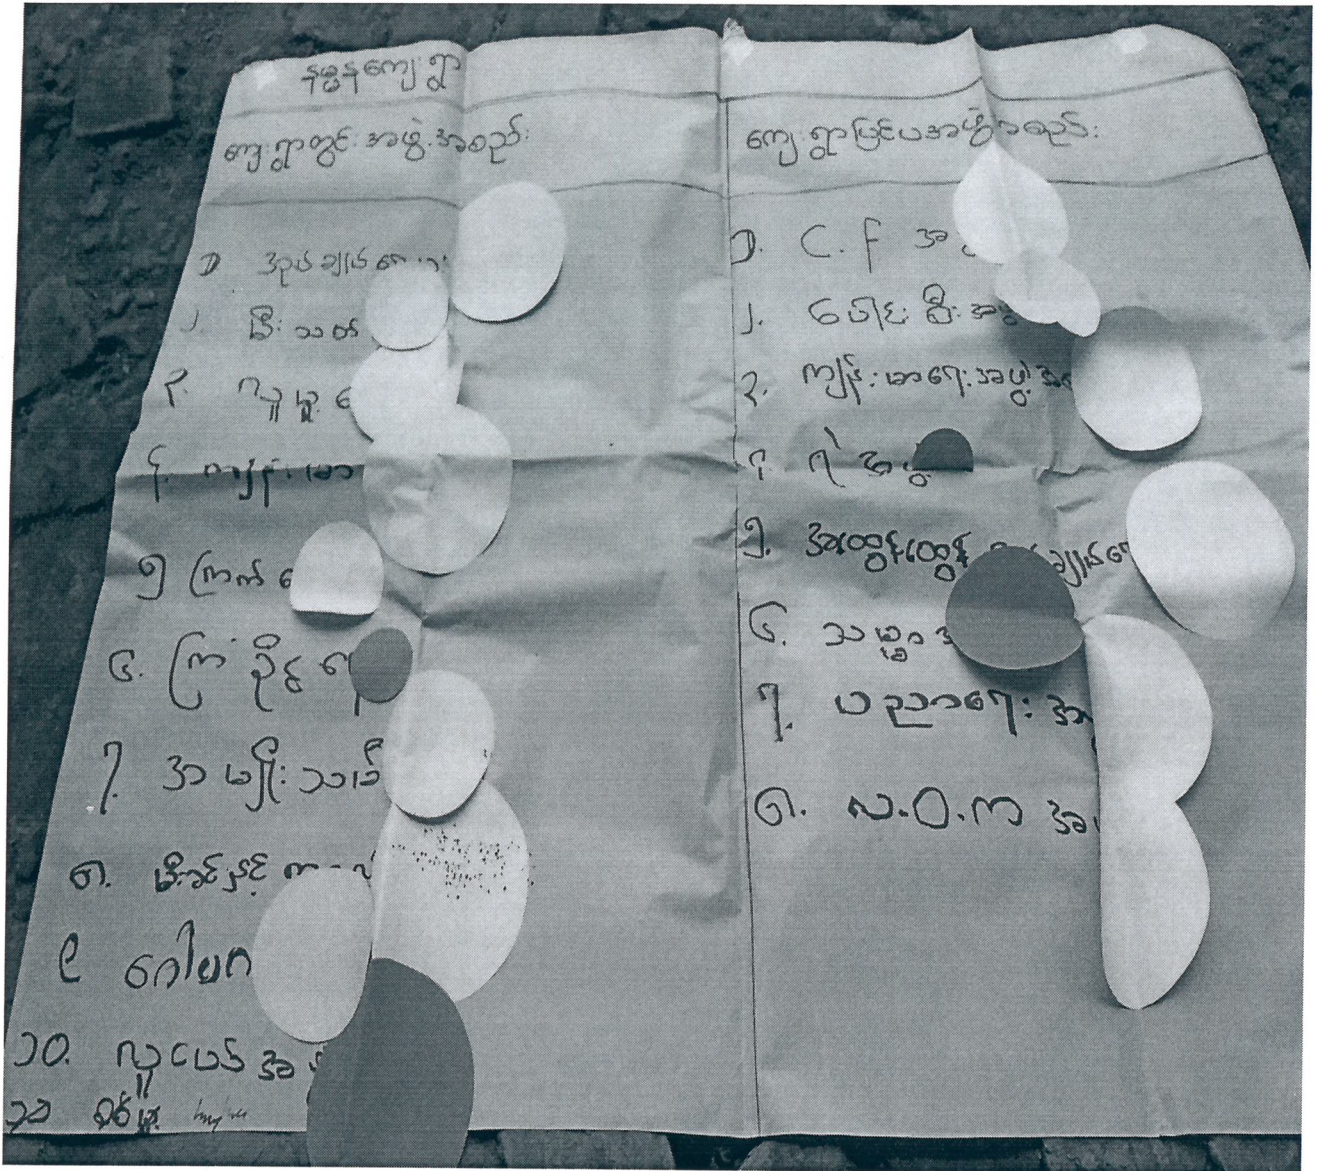 နမ္မနကျေးရွာ
ကျေးရွာတွင်းအဖွဲ့အစည်း
၁ အုပ်ချုပ်ရေး
၂ မီးသတ်
၃. လူမှု
၄. ကျန်းမာ
၅ ကြက်
၆. ကြံ့ခိုင်
၇. အမျိုးသမီး
၈. မိခင်နှင့် က
၉ ဂေါပက
၁၀. လူငယ် အ
၁၁
ကျေးရွာပြင်ပအဖွဲ့အစည်း
၁. C.F အ
၂. ပေါင်းစီး အဖွဲ့
၃. ကျန်းမာရေးအဖွဲ့အ
၄. ရဲ အဖွဲ့
၅. အထွေထွေ အုပ်ချုပ်ရေ
၆. သမ္မ
၇. ပညာရေး အ
၈. လ.ဝ.က အ